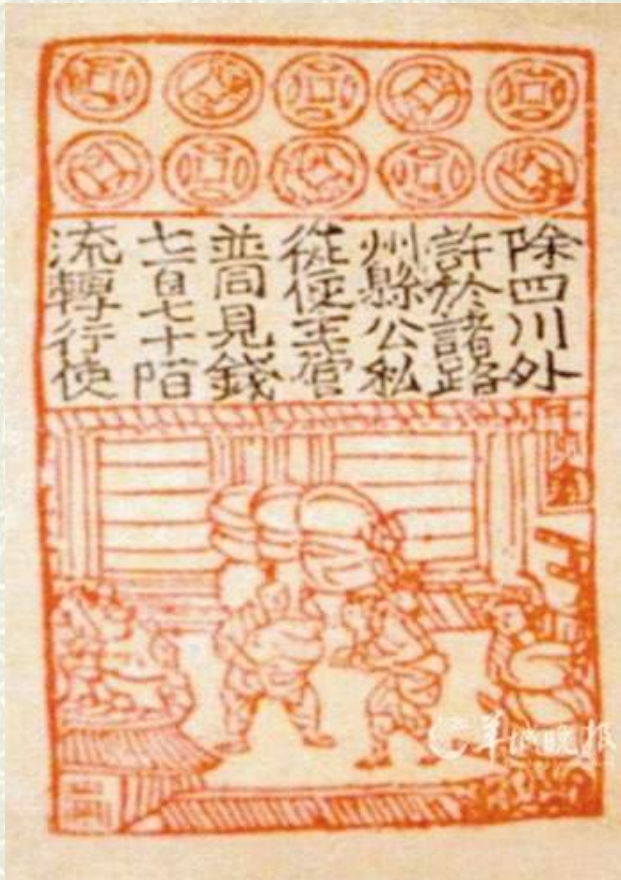 除四川外
許於諸路
州縣公私
從便主管
並同見錢
七百七十陌
流轉行使
羊城晚报